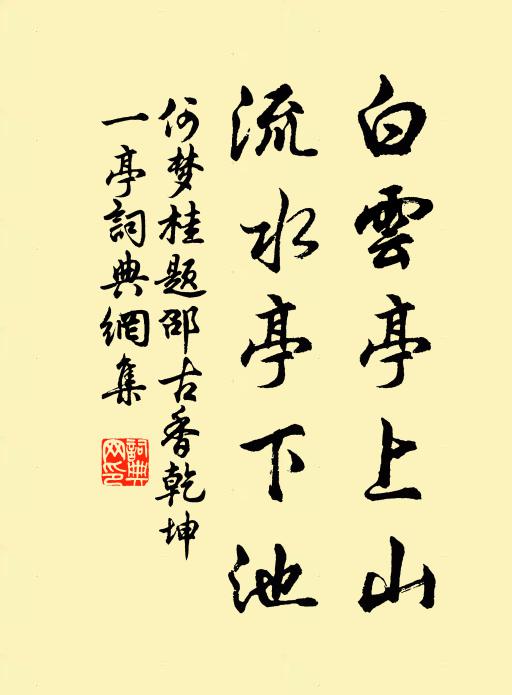 白雲亭上山
流水亭下池
何梦桂题邵古香乾坤
一亭詞典網集
詞典
网印